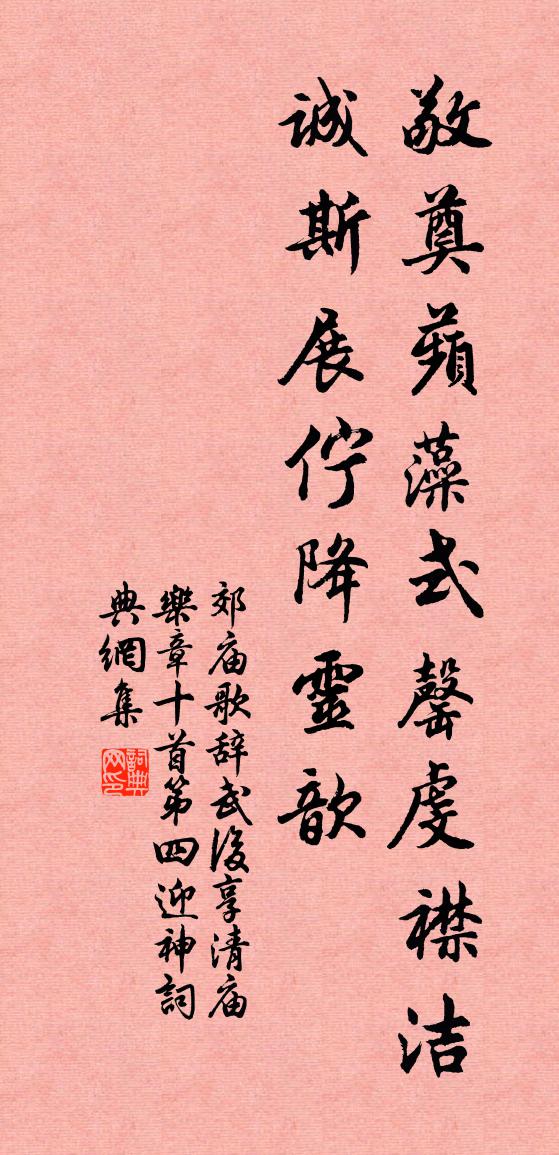 敬奠蘋藻式罄虔襟洁
诚斯展佇降靈歆
郊庙歌辞武後享清庙
樂章十首第四迎神詞
典網集
詞典网印